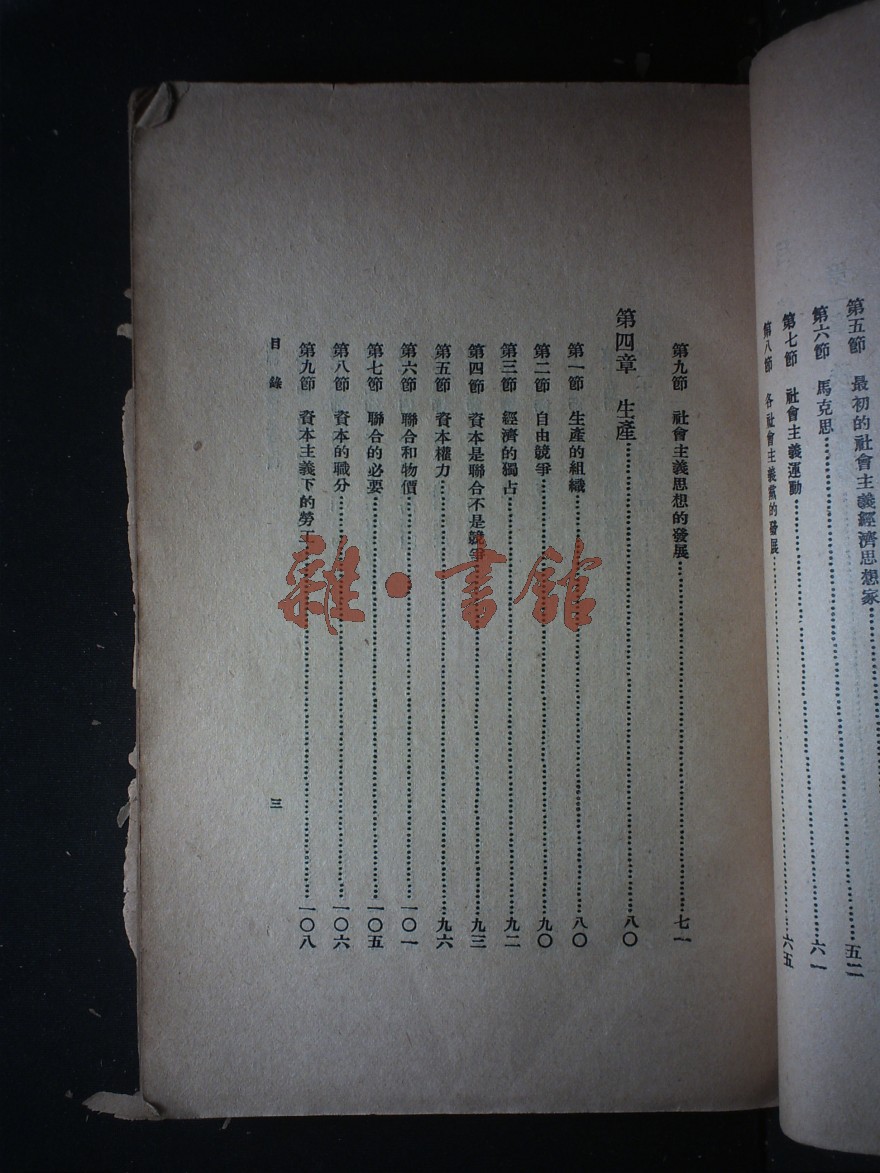 第五節 最初的社會主義經濟思想家……五二
第六節 馬克思……六一
第七節 社會主義運動……六五
第八節 各社會主義黨的發展……
第九節 社會主義思想的發展……七一
第四章 生產……八〇
第一節 生產的組織……八〇
第二節 自由競爭……九〇
第三節 經濟的獨占……九二
第四節 資本是聯合不是競爭……九三
第五節 資本權力……九六
第六節 聯合和物價……一〇一
第七節 聯合的必要……一〇五
第八節 資本的職分……一〇六
第九節 資本主義下的勞工……一〇八
目錄 三
雜·書館